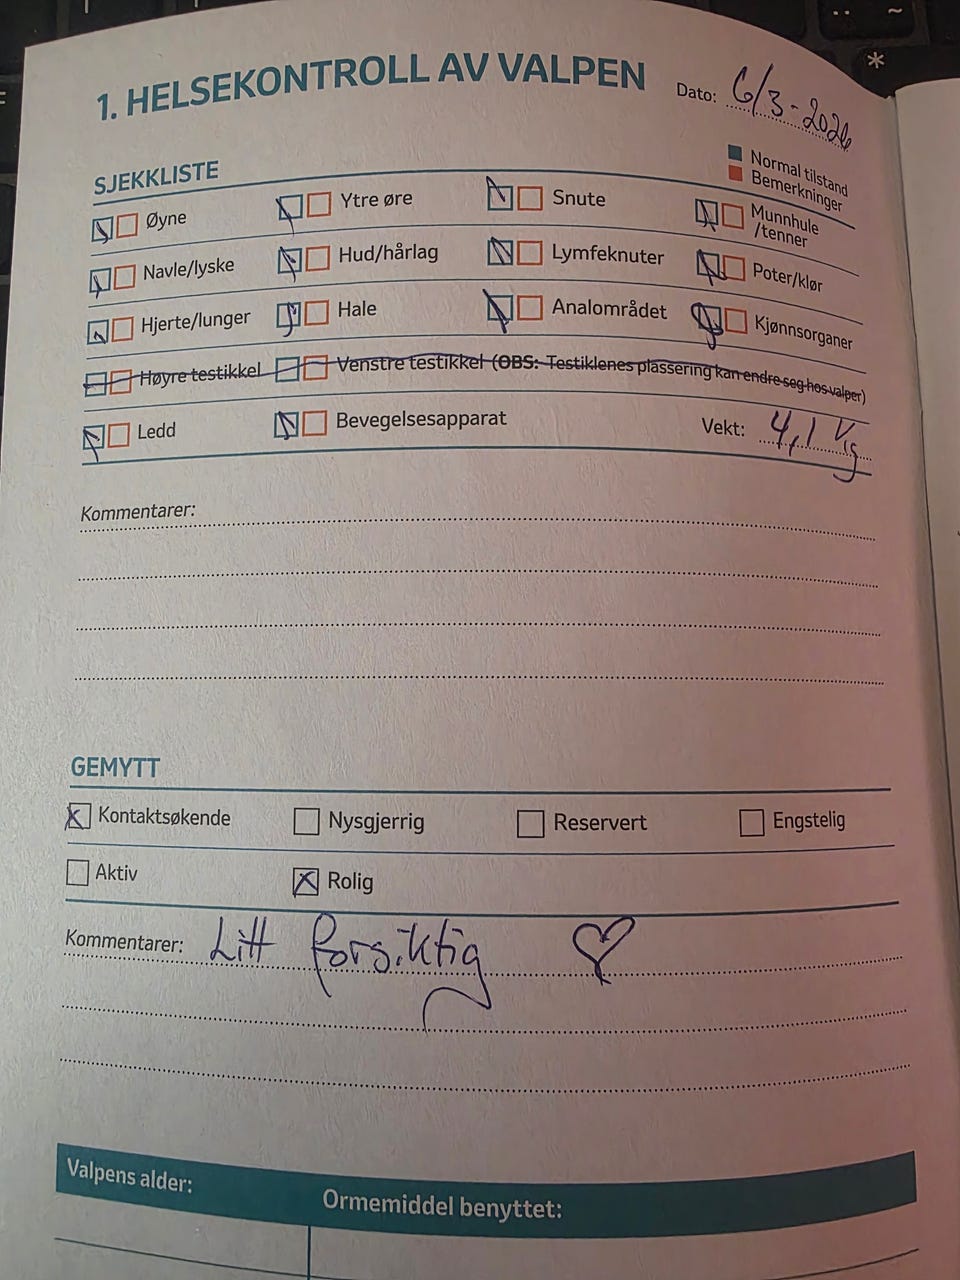 1. HELSEKONTROLL AV VALPEN Dato: 6/3-2026
SJEKKLISTE
Normal tilstand
Bemerkninger
Øyne Ytre øre Snute Munnhule /tenner
Navle/lyske Hud/hårlag Lymfeknuter Poter/klør
Hjerte/lunger Hale Analområdet Kjønnsorganer
Høyre testikkel Venstre testikkel (OBS: Testiklenes plassering kan endre seg hos valper)
Ledd Bevegelsesapparat Vekt: 4,1 kg
Kommentarer:
GEMYTT
Kontaktsøkende Nysgjerrig Reservert Engstelig
Aktiv Rolig
Kommentarer: Litt forsiktig
Valpens alder: Ormemiddel benyttet: